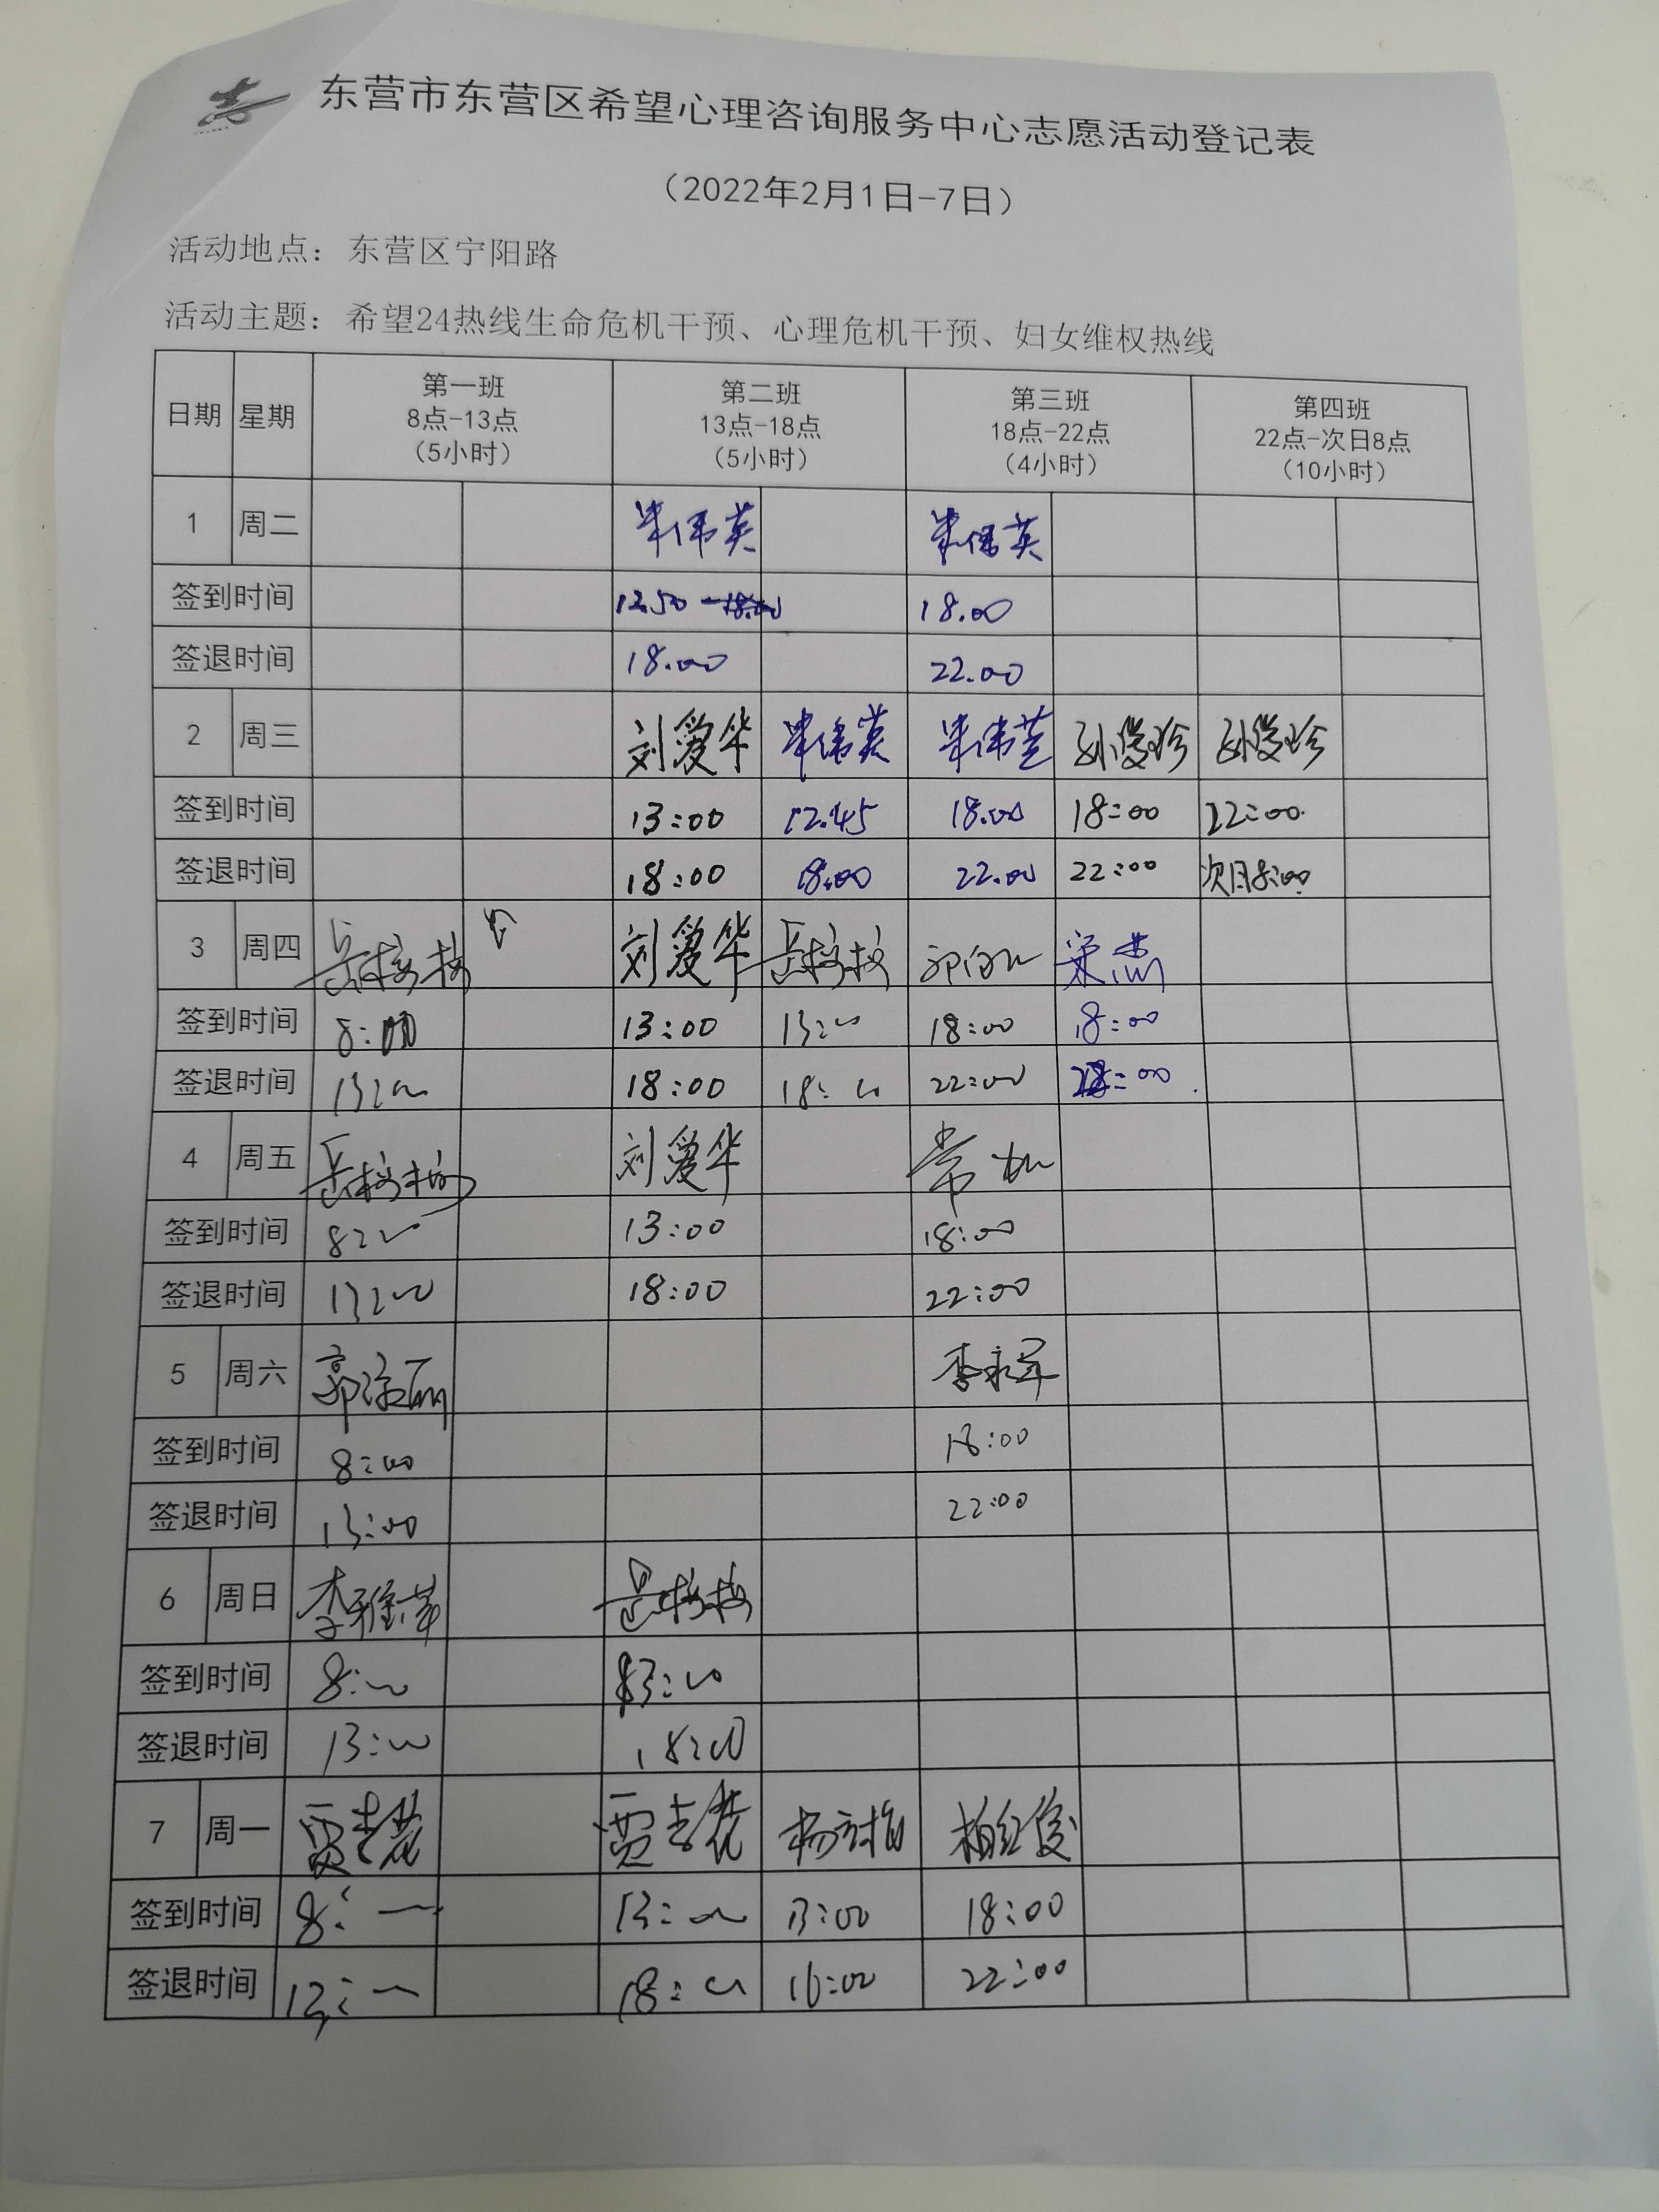 东营市东营区希望心理咨询服务中心志愿活动登记表
（2022年2月1日-7日）
活动地点：东营区宁阳路
活动主题：希望24热线生命危机干预、心理危机干预、妇女维权热线
日期 星期 第一班 8点-13点 （5小时） 第二班 13点-18点 （5小时） 第三班 18点-22点 （4小时） 第四班 22点-次日8点 （10小时）
1 周二
签到时间 12.50 18.00
签退时间 18.00 22.00
2 周三 刘爱华 孙俊珍 孙俊珍
签到时间 13:00 12.45 18.00 18:00 22:00
签退时间 18:00 18:00 22.00 22:00 次日8:00
3 周四 刘爱华
签到时间 8:00 13:00 13:00 18:00 18:00
签退时间 13:00 18:00 18:00 22:00 22:00
4 周五 刘爱华
签到时间 8:00 13:00 18:00
签退时间 13:00 18:00 22:00
5 周六 李永军
签到时间 8:00 18:00
签退时间 13:00 22:00
6 周日 李雅萍
签到时间 8:00 13:00
签退时间 13:00 18:00
7 周一 贾吉花 贾吉花
签到时间 8: 13:00 13:00 18:00
签退时间 18:00 16:00 22:00